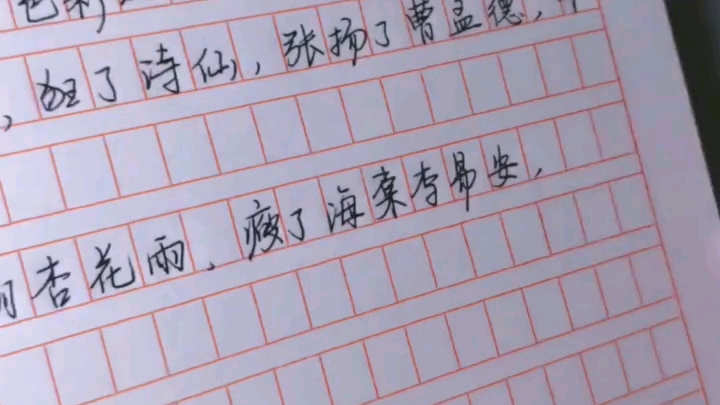 ，狂了诗仙，张扬了曹孟德，
杏花雨、瘦了海棠李易安，